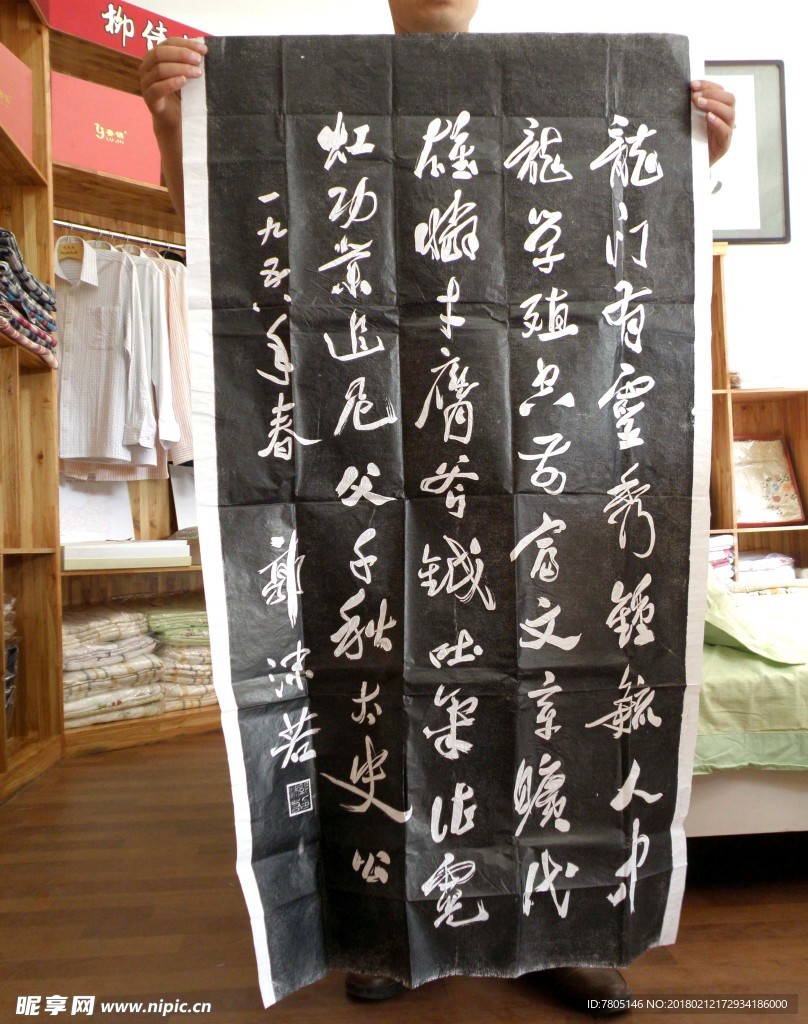 龍门有靈秀鍾毓人中
龍学殖空前富文章曠代
雄憐才膺斧鉞吐氣作霓
虹功業追尼父千秋太史公
一九五八年春 郭沫若
昵享网 www.nipic.cn
ID:7805146 NO:20180212172934186000